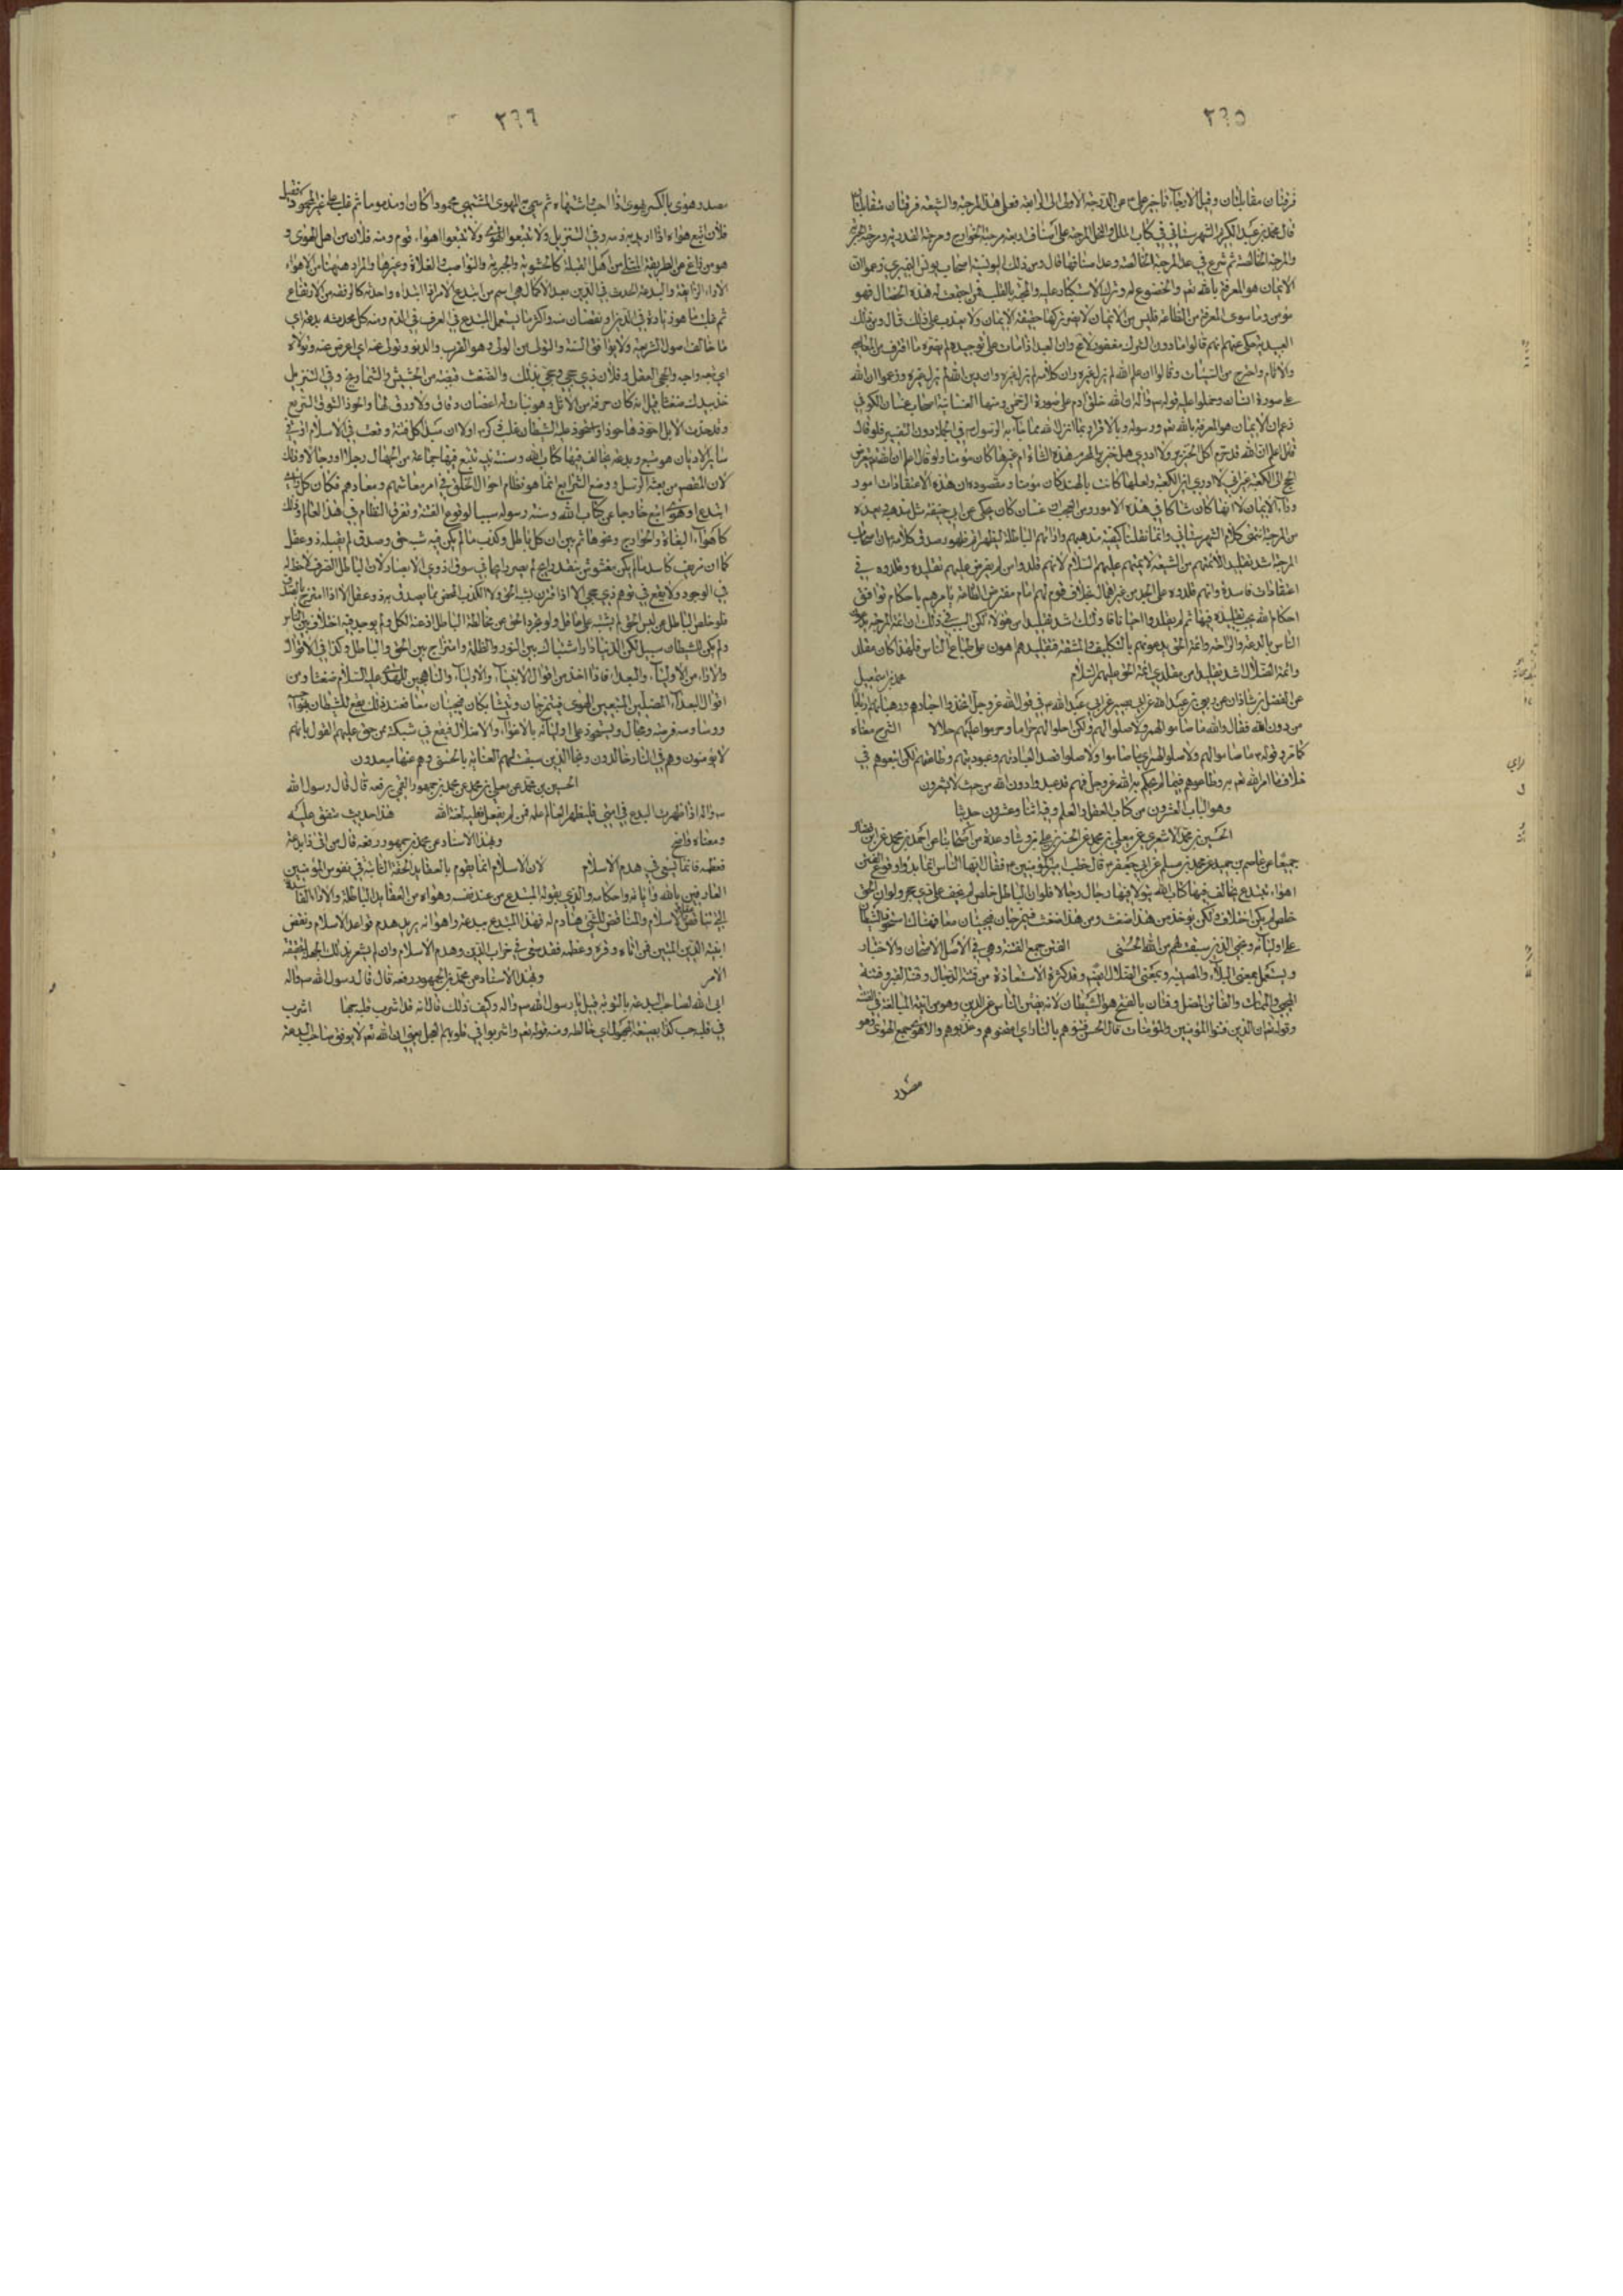 ٢٩٥
فرقتان متقابلتان وقيل الارجاء تاخير علي ع عن الدرجة الاولى الى الرابعة فعلى هذا المرجئة والشيعة فرقتان متقابلتان
قال محمد بن عبد الكريم الشهرستاني في كتاب الملل والنحل المرجئة على اصناف اربعة مرجئة الخوارج ومرجئة القدرية ومرجئة الجبرية
والمرجئة الخالصة ثم شرع في عد المرجئة الخالصة وعد اصنافها قال ومن ذلك اليونسية اصحاب يونس النميري زعموا ان
الايمان هو المعرفة بالله تعم والخضوع له وترك الاستكبار عليه والمحبة بالقلب فمن اجتمعت فيه هذه الخصال فهو
مؤمن وما سوى المعرفة من الطاعة فليس من الايمان لا يضر تركها حقيقة الايمان ولا يعذب على ذلك قال ومن ذلك
العبيدية حكى عنهم انهم قالوا ما دون الشرك مغفور لا مح وان العبد اذا مات على توحيده لم يضره ما اقترف من
الاثام واجترح من السيئات وقالوا ان علم الله لم يزل غيره وان كلامه لم يزل غيره وان دين الله لم يزل غيره وزعموا ان الله
على صورة انسان وحملوا عليه قوله ص واله ان الله خلق ادم على صورة الرحمن ومنها الغسانية اصحاب غسان الكوفي
زعم ان الايمان هو المعرفة بالله تعم ورسوله والاقرار بما انزل الله مما جاء به الرسول ص في الجملة دون التفسير فلو قال
قائل اعلم ان الله قد حرم اكل الخنزير ولا ادري هل خنزير المحرم هذه الشاة ام غيرها كان مؤمنا ولو قال اعلم ان الله قد فرض
الحج الى الكعبة غير اني لا ادري اين الكعبة ولعلها كانت بالهند كان مؤمنا ومقصوده ان هذه الاعتقادات امور
وراء الايمان لا انه كان شاكا في هذه الامور ومن العجب ان غسان كان يحكي عن ابي حنيفة مثل مذهبه ويعده
من المرجئة انتهى كلام الشهرستاني وانما نقلنا كيفية مذهبهم وارائهم الباطلة ليظهر فرط ظهور صدق كلامه بان اصحاب
المرجئة اشد تقليدا لائمتهم من الشيعة لائمتهم عليهم السلام لانهم قلدوا من لم يفرض عليهم تقليده وقلدوه في
اعتقادات فاسدة وانهم قلدوه على الجد من غير اهمال بخلاف قوم لهم امام مفترض الطاعة يامرهم باحكام توافق
احكام الله يجب تقليده فيها ثم لم يقلدوا احيانا فاولئك اشد تقليدا من هؤلاء لكن السبب في ذلك ان ائمة المرجئة يدعون
الناس بالدعة والراحة وائمة الحق يدعونهم بالتكليف والمشقة فتقليدهم اهون على طباع الناس فلهذا كان مقلد
وائمة الضلال اشد تقليدا من مقلدي ائمة الحق عليهم السلام محمد بن اسمعيل
عن الفضل بن شاذان عن ربعي بن عبد الله عن ابي بصير عن ابي عبد الله ع في قول الله عز وجل اتخذوا احبارهم ورهبانهم اربابا
من دون الله فقال والله ما صاموا لهم ولا صلوا لهم ولكن احلوا لهم حراما وحرموا عليهم حلالا الشرح معناه
كما مر وقوله ع ما صاموا لهم ولا صلوا لهم اي ما صاموا ولا صلوا قصد العبادتهم وعبوديتهم وطاعتهم لكن اتبعوهم في
خلاف ما امر الله تعم به وطاعوهم فيما لم يحكم به الله عز وجل فهم قد عبدوا دون الله من حيث لا يشعرون
وهو الباب العشرون من كتاب العقل والعلم وفيه اثنا وعشرون حديثا
الحسين بن محمد الاشعري عن معلى بن محمد عن الحسن بن علي بن وشا وعدة من اصحابنا عن احمد بن محمد عن ابن فضال
جميعا عن عاصم بن حميد عن محمد بن مسلم عن ابي جعفر ع قال خطب امير المؤمنين ع فقال ايها الناس انما بدؤا وقوع الفتن
اهواء تتبع واحكام تبتدع يخالف فيها كتاب الله يتولى فيها رجال رجالا فلو ان الباطل خلص لم يخف على ذي حجى ولو ان الحق
خلص لم يكن اختلاف ولكن يؤخذ من هذا ضغث ومن هذا ضغث فيمزجان فيجيئان معا فهنالك استحوذ الشيطان
على اوليائه ونجى الذين سبقت لهم من الله الحسنى الفتن جمع الفتنة وهي في الاصل الامتحان والاختبار
ويستعمل بمعنى البلاء والمصيبة وبمعنى الضلال ايضا وقد كثرة الاستعاذة من فتنة الدجال وفتنة القبر وفتنة
المحيى والممات والفاتن المضل وفتان بالفتح هو الشيطان لانه يفتن الناس عن الدين وهو من ابنية المبالغة في الفتنة
وقوله تعم ان الذين فتنوا المؤمنين والمؤمنات قال الحسن فتنوهم بالنار اي امتحنوهم وعذبوهم والاهواء جمع الهوى وهو
مصدر
٢٩٦
مصدر هوى بالكسر يهوى اذا احب واشتهاه ثم سمي الهوى المشتهى محمودا كان او مذموما ثم غلب على غير المحمود فقيل
فلان اتبع هواه اذا اريد به ذمه وفي التنزيل ولا تتبعوا الهوى ولا تتبعوا اهواء قوم ومنه فلان من اهل الهوى و
هو من زاغ عن الطريقة المثلى من اهل القبلة كالحشوية والجبرية والنواصب والغلاة وغيرها والمراد ههنا من الاهواء
الاراء الزايغة والبدعة الحدث في الدين بعد الاكمال هي اسم من ابتدع الامر اذا ابتداه واحدثه كالرفعة من الارتفاع
ثم غلبت ما هو زيادة في الدين او نقصان منه واكثر ما يستعمل المبتدع في العرف في الذم ومنه كل محدثة بدعة اي
ما خالف اصول الشريعة ولا يوافق السنة والتولي من الولي وهو القرب والدنو وتولى عنه اي اعرض عنه وتولاه
اي تبعه واحبه والحجى العقل وفلان ذي حجى حجي بذلك والضغث قبضة من الحشيش والشماريخ وفي التنزيل
خذ بيدك ضغثا قيل انه كان حزمة من الاثل وهو نبات له اغصان دقاق ولا ورق لها والحوذ السوق السريع
وقد حذت الابل احوذها حوذا واستحوذ عليه الشيطان غلب ذكر ع اولا ان سبب كل فتنة وقعت في الاسلام او في
ساير الاديان هو متبع وبدعة يخالف فيها كتاب الله وسنة نبيه تتبع فيها جماعة من الجهال رجلا او رجالا وذلك
لان المقصد من بعثة الرسل ووضع الشرايع انما هو نظام احوال الخلق في امر معاشهم ومعادهم فكان كل راي
ابتدع او هوى اتبع خارجا عن كتاب الله وسنة رسوله سببا لوقوع الفتنة وتفرق النظام في هذا العالم وذلك
كاهواء البغاة والخوارج ونحوها ثم بين ان كل باطل وكذب ما لم يكن فيه شبه حق وصدق لم يقبله ذو عقل
كما ان زيف كاسد ما لم يكن مغشوش بنقد رايج لم يصر رايجا في سوق ذوي الابصار لان الباطل الصرف لاحظ له
في الوجود ولا يقع في توهم ذي حجى الا اذا اقترن بشبه الحق ولا الكذب المحض مما يصدق به ذو عقل الا اذا امتزج بالصدق
فلو خلص الباطل من لبس الحق لم يشتبه على عاقل ولو تجرد الحق عن مخالطة الباطل اذعنه الكل ولم يوجد فيه اختلاف بين الناس
ولم يكن للشيطان سبيل لكن الدنيا دار اشتباك بين النور والظلمة وامتزاج بين الحق والباطل وكذا في الاقوال
والاراء من الاولياء والبعداء فاذا اخذ من اقوال الانبياء والاولياء والناهجين للهدى عليه السلام ضغثا ومن
اقوال البعداء المضلين المتبعين للهوى فيمتزجان ويتشابكان فيجيئان معا فعند ذلك يقع للشيطان
ووساوسه فرصة ومجال ويستحوذ على اوليائه بالاغواء والاضلال فيقع في شبكته ممن حق عليهم القول بانهم
لا يؤمنون وهم في النار خالدون ونجا الذين سبقت لهم العناية بالحسنى وهم عنها مبعدون
الحسين بن محمد عن معلى بن محمد عن محمد بن جمهور القمي يرفعه قال قال رسول الله
ص واله اذا ظهرت البدع في امتي فليظهر العالم علمه فمن لم يفعل فعليه لعنة الله هذا حديث متفق عليه
ومعناه واضح وبهذا الاسناد عن محمد بن جمهور رفعه قال من اتى ذا بدعة
فعظمه فانما يسعى في هدم الاسلام لان الاسلام انما يقوم بالعقايد الحقة الثابتة في نفوس المؤمنين
العارفين بالله واياته واحكامه والذي يقوله المبتدع من عند نفسه وهواه من العقايد الباطلة والاراء الفاسدة
التي تناقض الاسلام والمناقض للشيء هادم له فهذا المبتدع ببدعته واهوائه يريد هدم قواعد الاسلام ونقض
ابنية الدين المتين فمن اتاه ووقره وعظمه فقد سعى في خراب الدين وهدم الاسلام وان لم يشعر بذلك لجهله بحقيقة
الامر وبهذا الاسناد عن محمد بن الجمهور رفعه قال قال رسول الله ص واله
ابى الله لصاحب البدعة بالتوبة قيل يا رسول الله ص واله وكيف ذلك قال انه قد اشرب قلبه حبها اشرب
في قلبه حب كذا بصيغة المجهول اي خالطه ومنه قوله تعم واشربوا في قلوبهم العجل يعني ان الله تعم لا يوفق صاحب البدعة